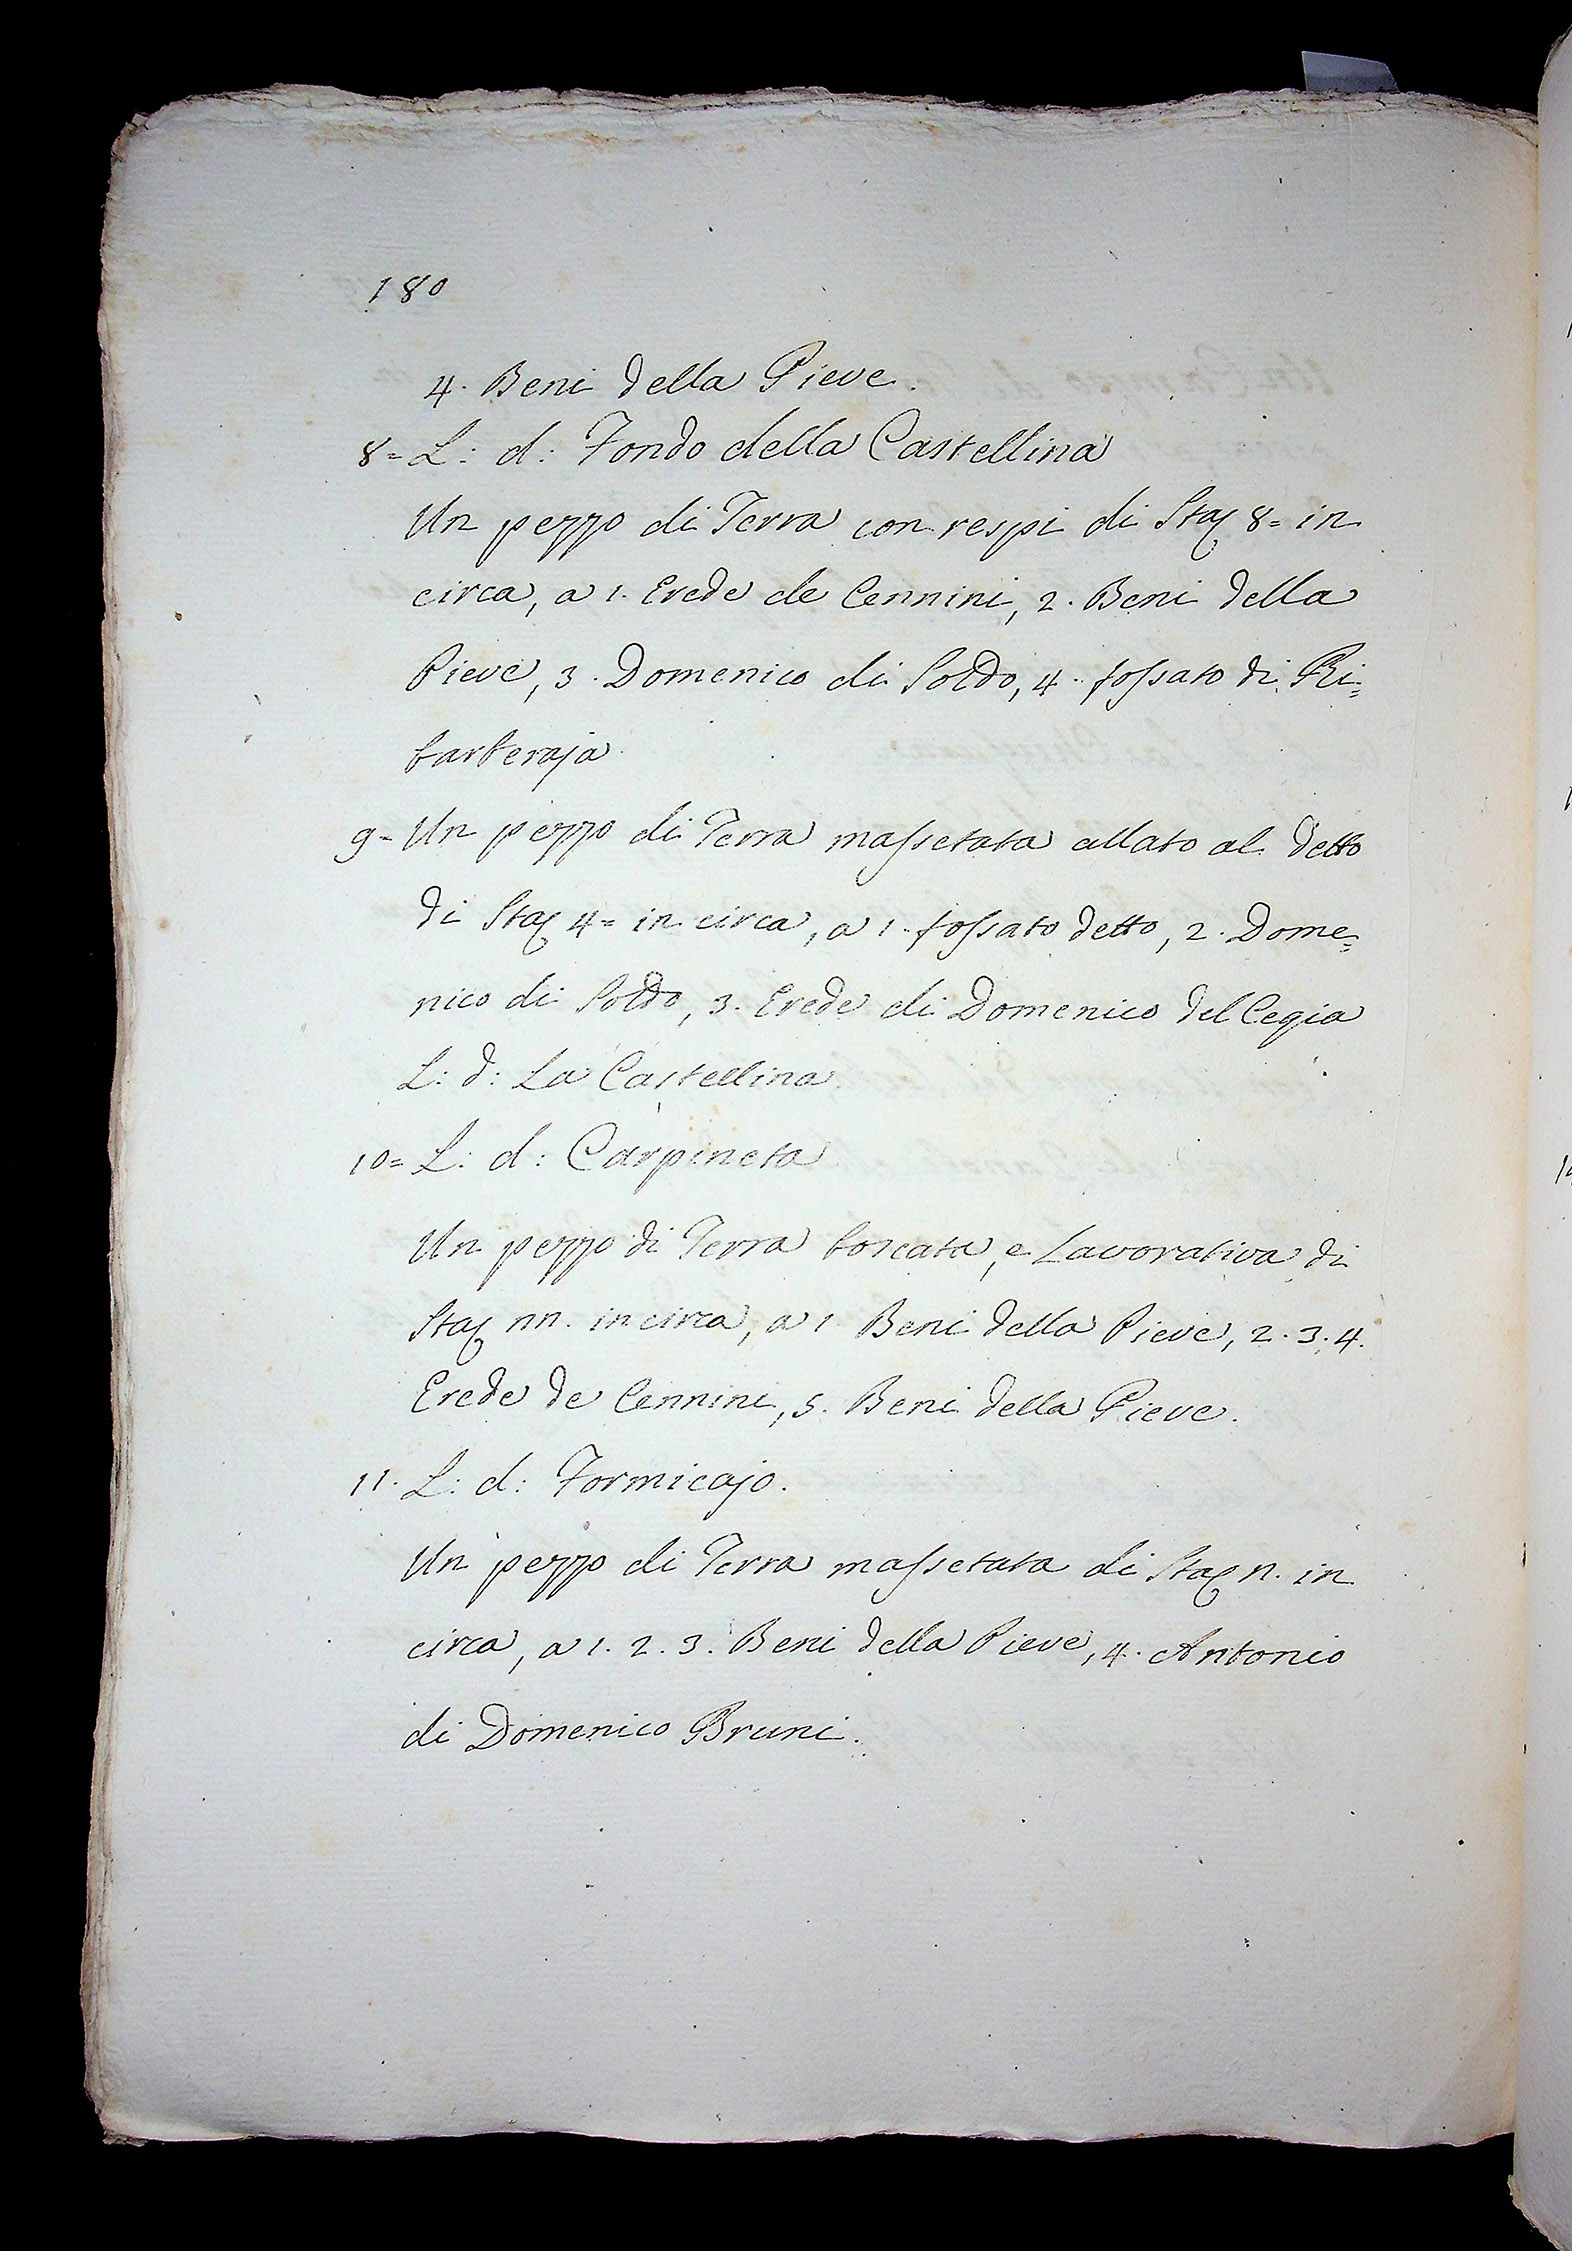 180
4. Beni della Pieve.
8= L: d: Fondo della Castellina
Un pezzo di Terra con respi di Staj 8= in
circa, a 1. Erede de Cennini, 2. Beni della
Pieve, 3. Domenico di Poldo, 4. fossato di Ri=
barberaja
9= Un pezzo di Terra massetata allato al detto
di Staj 4= in circa, a 1. fossato detto, 2. Dome=
nico di Poldo, 3. Erede di Domenico del Cegia
L: d: La Castellina
10= L: d: Carpineta
Un pezzo di Terra boscata, e Lavorativa di
Staj nn. in circa, a 1 Beni della Pieve, 2. 3. 4.
Erede de Cennini, 5. Beni della Pieve.
11. L: d: Formicajo.
Un pezzo di Terra massetata di Staj n. in
circa, a 1. 2. 3. Beni della Pieve, 4. Antonio
di Domenico Bruni.